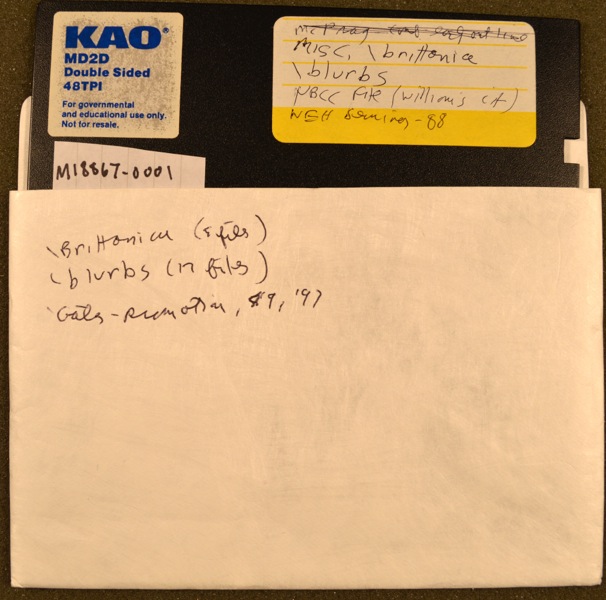 KAO®
MD2D
Double Sided
48TPI
For governmental
and educational use only.
Not for resale.
M18867-0001
MISC, \brittonica
\blurbs
NBCC File (Williams cit)
NEH Seminar-88
\Brittonica (8 files)
\blurbs (17 files)
\Gates-promotion, 89, '97